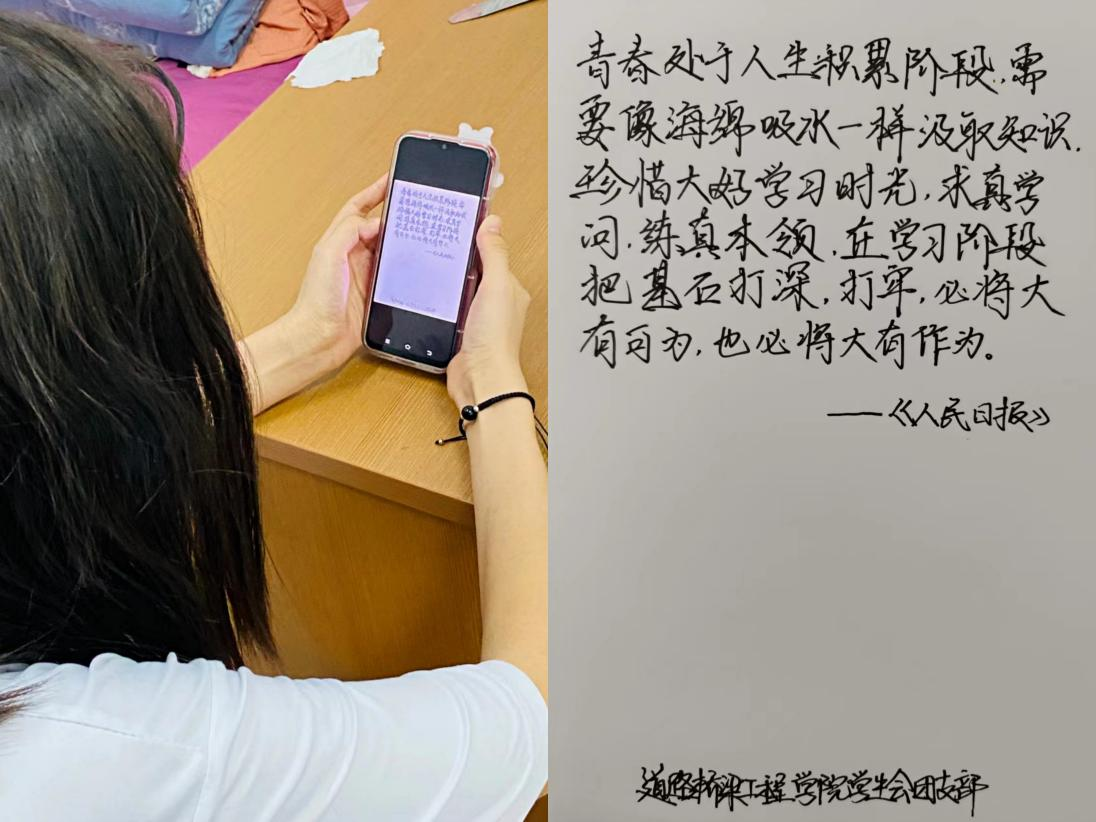 青春处于人生积累阶段,需
要像海绵吸水一样汲取知识.
珍惜大好学习时光,求真学
问,练真本领,在学习阶段
把基石打深,打牢,必将大
有可为,也必将大有作为。
——《人民日报》
道路桥梁工程学院学生会团支部